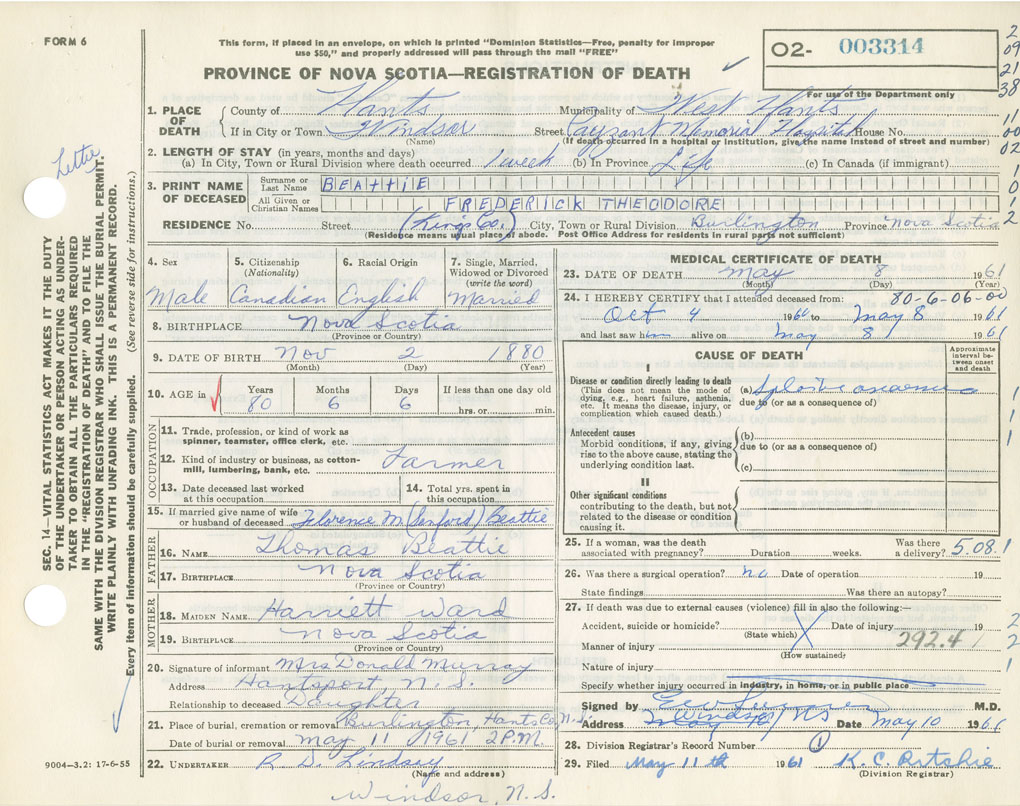 FORM 6
This form, if placed in an envelope, on which is printed "Dominion Statistics—Free, penalty for improper
use $50," and properly addressed will pass through the mail "FREE"
O2- 003314
For use of the Department only
PROVINCE OF NOVA SCOTIA—REGISTRATION OF DEATH
2
09
21
38
11
00
02
1
0
1
2
Letter
SEC. 14—VITAL STATISTICS ACT MAKES IT THE DUTY
OF THE UNDERTAKER OR PERSON ACTING AS UNDER-
TAKER TO OBTAIN ALL THE PARTICULARS REQUIRED
IN THE "REGISTRATION OF DEATH" AND TO FILE THE
SAME WITH THE DIVISION REGISTRAR WHO SHALL ISSUE THE BURIAL PERMIT.
WRITE PLAINLY WITH UNFADING INK. THIS IS A PERMANENT RECORD.
Every item of information should be carefully supplied. (See reverse side for instructions.)
1. PLACE OF DEATH County of Hants Municipality of West Hants
If in City or Town Windsor Street Payzant Memorial Hospital House No.
(Name) (If death occurred in a hospital or institution, give the name instead of street and number)
2. LENGTH OF STAY (in years, months and days)
(a) In City, Town or Rural Division where death occurred 1 week (b) In Province Life (c) In Canada (if immigrant)
3. PRINT NAME OF DECEASED Surname or Last Name BEATTIE
All Given or Christian Names FREDERICK THEODORE
RESIDENCE No. Street (Kings Co.) City, Town or Rural Division Burlington Province Nova Scotia
(Residence means usual place of abode. Post Office Address for residents in rural parts not sufficient)
4. Sex 5. Citizenship (Nationality) 6. Racial Origin 7. Single, Married, Widowed or Divorced (write the word)
Male Canadian English Married
8. BIRTHPLACE Nova Scotia
(Province or Country)
9. DATE OF BIRTH Nov 2 1880
(Month) (Day) (Year)
10. AGE in Years Months Days If less than one day old
80 6 6 hrs. or min.
OCCUPATION
11. Trade, profession, or kind of work as
spinner, teamster, office clerk, etc.
12. Kind of industry or business, as cotton-
mill, lumbering, bank, etc. Farmer
13. Date deceased last worked at this occupation 14. Total yrs. spent in this occupation
15. If married give name of wife
or husband of deceased Florence M (Sanford) Beattie
FATHER
16. NAME Thomas Beattie
17. BIRTHPLACE Nova Scotia
(Province or Country)
MOTHER
18. MAIDEN NAME Harriett Ward
19. BIRTHPLACE Nova Scotia
(Province or Country)
20. Signature of informant Mrs Donald Murray
Address Hantsport N.S.
Relationship to deceased Daughter
21. Place of burial, cremation or removal Burlington, Hants Co, N.S.
Date of burial or removal May 11 1961 2 P.M.
22. UNDERTAKER R. D. Lindsay
(Name and address)
Windsor, N.S.
9004—3.2: 17-6-55
MEDICAL CERTIFICATE OF DEATH
23. DATE OF DEATH May 8 1961
(Month) (Day) (Year)
24. I HEREBY CERTIFY that I attended deceased from: 80-6-06-00
Oct 4 1960 to May 8 1961
and last saw him alive on May 8 1961
CAUSE OF DEATH
Approximate interval between onset and death
I
Disease or condition directly leading to death
(This does not mean the mode of
dying, e.g., heart failure, asthenia,
etc. It means the disease, injury, or
complication which caused death.)
(a) Aplastic anaemia
due to (or as a consequence of)
Antecedent causes
Morbid conditions, if any, giving
rise to the above cause, stating the
underlying condition last.
(b)
due to (or as a consequence of)
(c)
II
Other significant conditions
contributing to the death, but not
related to the disease or condition
causing it.
1
1
1
25. If a woman, was the death
associated with pregnancy? Duration weeks. Was there a delivery? 5.08.1
26. Was there a surgical operation? no Date of operation 19
State findings Was there an autopsy?
27. If death was due to external causes (violence) fill in also the following:—
Accident, suicide or homicide? Date of injury 19 2
(State which) 292.4
Manner of injury 2
(How sustained)
Nature of injury 1
Specify whether injury occurred in industry, in home, or in public place
Signed by M.D.
Address Windsor NS Date May 10 1961
28. Division Registrar's Record Number 1
29. Filed May 11th 1961 K. C. Ritchie
(Division Registrar)